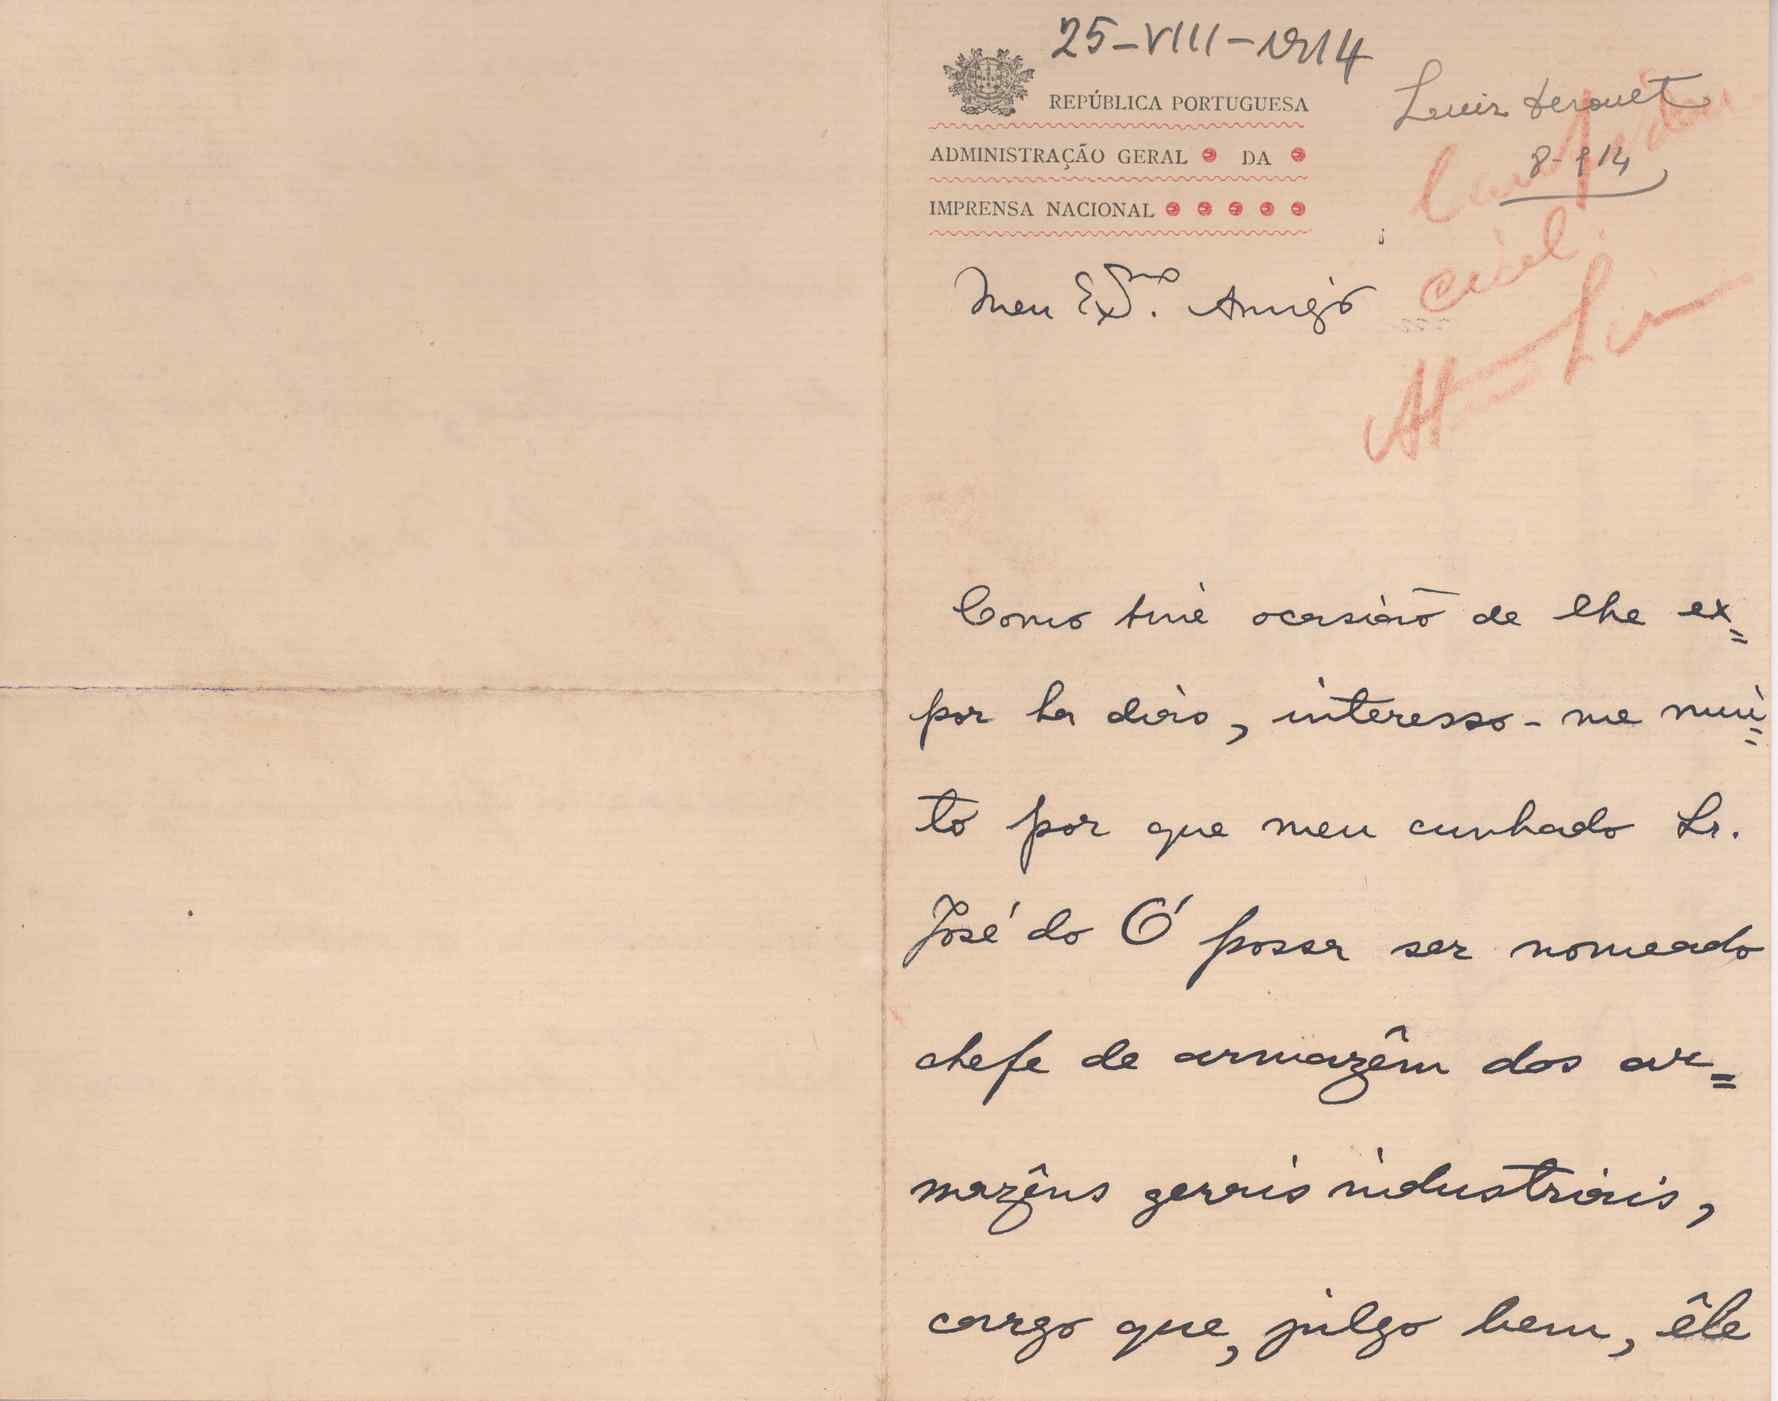 25-VIII-1914
REPÚBLICA PORTUGUESA
ADMINISTRAÇÃO GERAL DA
IMPRENSA NACIONAL
Luiz Derouet
8-914
Meu Exmo. Amigo
Como tive ocasião de lhe ex=
por ha dias, interesso-me mui=
to por que meu cunhado Sr.
José do Ó possa ser nomeado
chefe de armazêm dos ar=
mazêns gerais industriais,
cargo que, julgo bem, êle